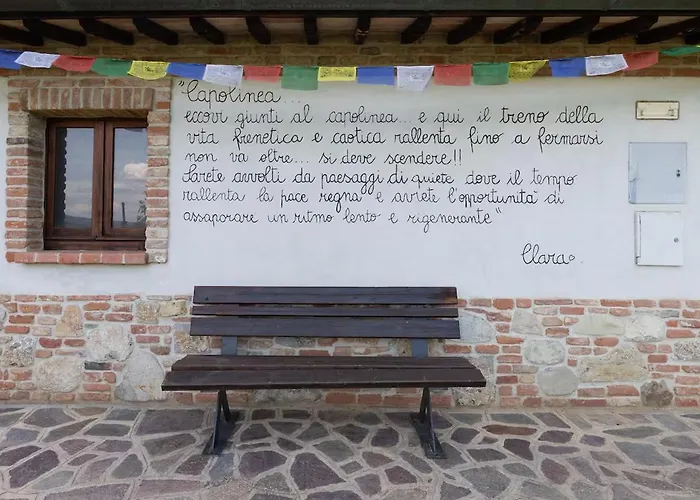 "Capolinea...
eccovi giunti al capolinea... e qui il treno della
vita frenetica e caotica rallenta fino a fermarsi
non va oltre... si deve scendere!!
Sarete avvolti da paesaggi di quiete dove il tempo
rallenta la pace regna e avrete l'opportunità di
assaporare un ritmo lento e rigenerante"
Clara